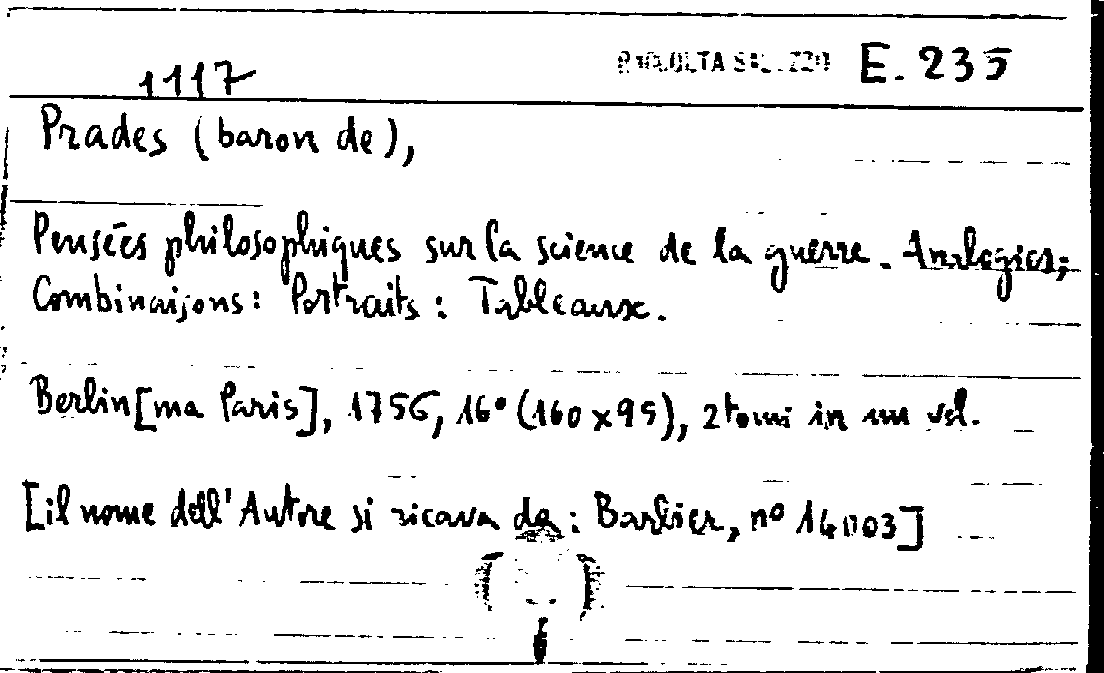 1117
RACCOLTA SALUZZO E. 235
Prades (baron de),
Pensées philosophiques sur la science de la guerre. Analogies;
Combinaisons: Portraits: Tableaux.
Berlin [ma Paris], 1756, 16° (160x95), 2 tomi in un vol.
[il nome dell'Autore si ricava da: Barbier, n° 14003]